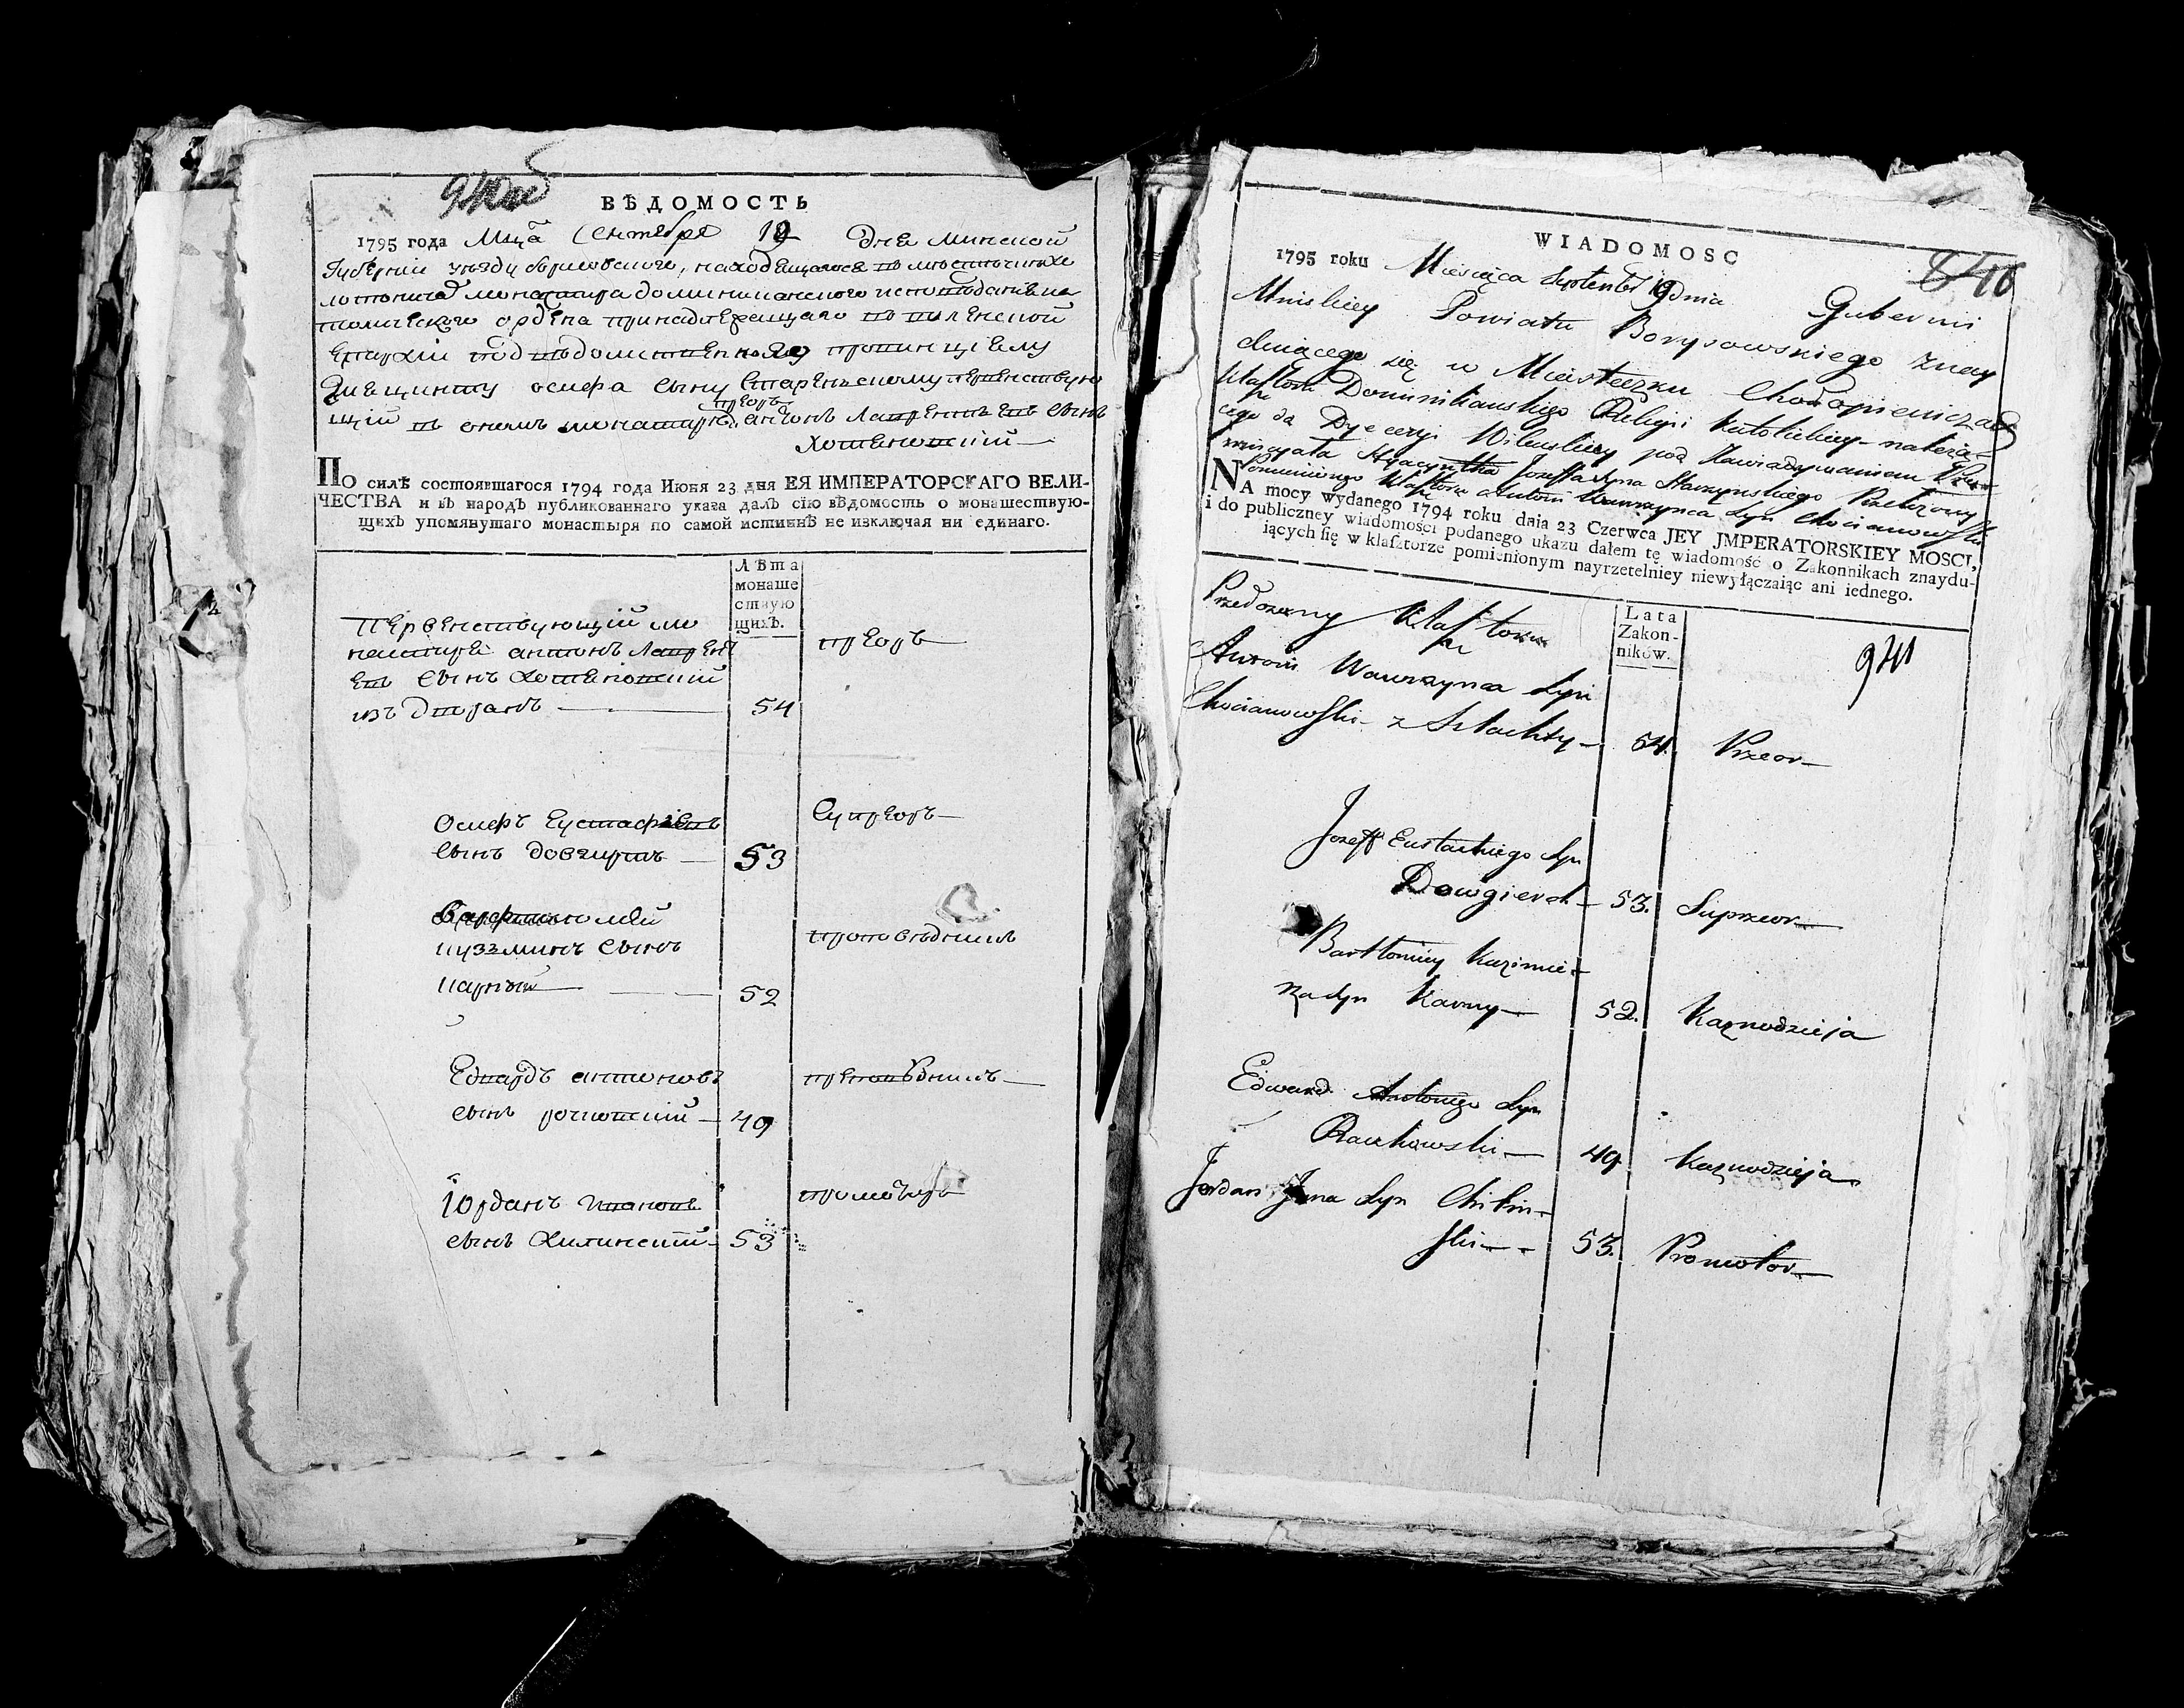 ВѢДОМОСТЬ
1795 года Мца Сентебра 19 дне Минской
Губернии уезду борисовского, находещагося въ местечке Хо
лопеничах монастира доминиканского исповедание ка
толического ордена принадлежащаго въ виленской
епархии под ведомством провинциалу
Гиецинту осифа сину Старенскому первенствую
щий въ оном монастире приоръ антонъ Лавриневъ сынъ
Хотяновский
ПО силѣ состоявшагося 1794 года Июня 23 дня ЕЯ ИМПЕРАТОРСКАГО ВЕЛИ-
ЧЕСТВА и въ народъ публикованнаго указа далъ сію вѣдомость о монашествую-
щихъ упомянутаго монастыря по самой истиннѣ не изключая ни единаго.
Лѣта
монаше
ствую
щихъ.
Первенствующий мо
настире антонъ Лаврен
евъ сынъ Хотяновский
изъ дворянъ — 54 приоръ
Осифъ Еустафіевъ Супреоръ
сынъ довгиртъ — 53
Бартоломей
кузминъ сынъ проповѣдникъ
карный — 52
Едвардъ антоновъ проповѣдникъ
сынъ рочковский — 49
Іорданъ Ивановъ промоторъ
сынъ Хилинский 53
WIADOMOSC
1795 roku Miesiąca Septembr 19 dnia Gubernii
Mińskiey Powiatu Borysowskiego znay
duiącego się w Miasteczku Chołopieniczach
Klasztoru Dominikańskiego Religii Katolickiey należą-
cego do Dyecezyi Wileńskiey pod Zawiadywaniem Pro-
wincyała Hyacyntha Jozeffa syna Starzynskiego Przełożony
Pomienionego Klasztoru Antoni Wawrzynca Syn Chocianowski
NA mocy wydanego 1794 roku dnia 23 Czerwca JEY JMPERATORSKIEY MOSCI,
i do publiczney wiadomości podanego ukazu dałem tę wiadomość o Zakonnikach znaydu-
iących się w klasztorze pomienionym nayrzetelniey niewyłączaiąc ani iednego.
Lata
Zakon-
ników.
941
Przełożony Klasztoru
Antoni Wawrzynca Syn
Chocianowski z Szlachty — 54. Przeor
Jozeff Eustachiego Syn
Dowgierd — 53. Suprzeor
Bartłomiey Kazimie-
rza Syn Karny — 52. Kaznodzieja
Edward Antoniego Syn
Raczkowski — 49. Kaznodzieja
Jordan Jana Syn Chilin-
ski — 53. Promotor